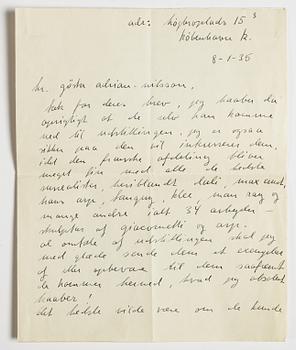 adr: højbroplads 15 3
københavn k.
8-1-35
hr. gösta adrian-nilsson,
tak for deres brev, jeg haaber da
oprigtigt at de selv kan komme
ned til udstillingen. jeg er ogsaa
sikker paa den vil interessere dem,
idet den franske afdeling bliver
meget fin med alle de bedste
surrealister, heriblandt dali, max ernst,
hans arp, tanguy, klee, man ray og
mange andre ialt 34 arbejder –
skulptur af giacometti og arp.
al omtale af udstillingen skal jeg
med glæde sende dem et exemplar
af eller opbevare til dem saafremt
de kommer herned, hvad jeg absolut
haaber!
det bedste vilde være om de kunde